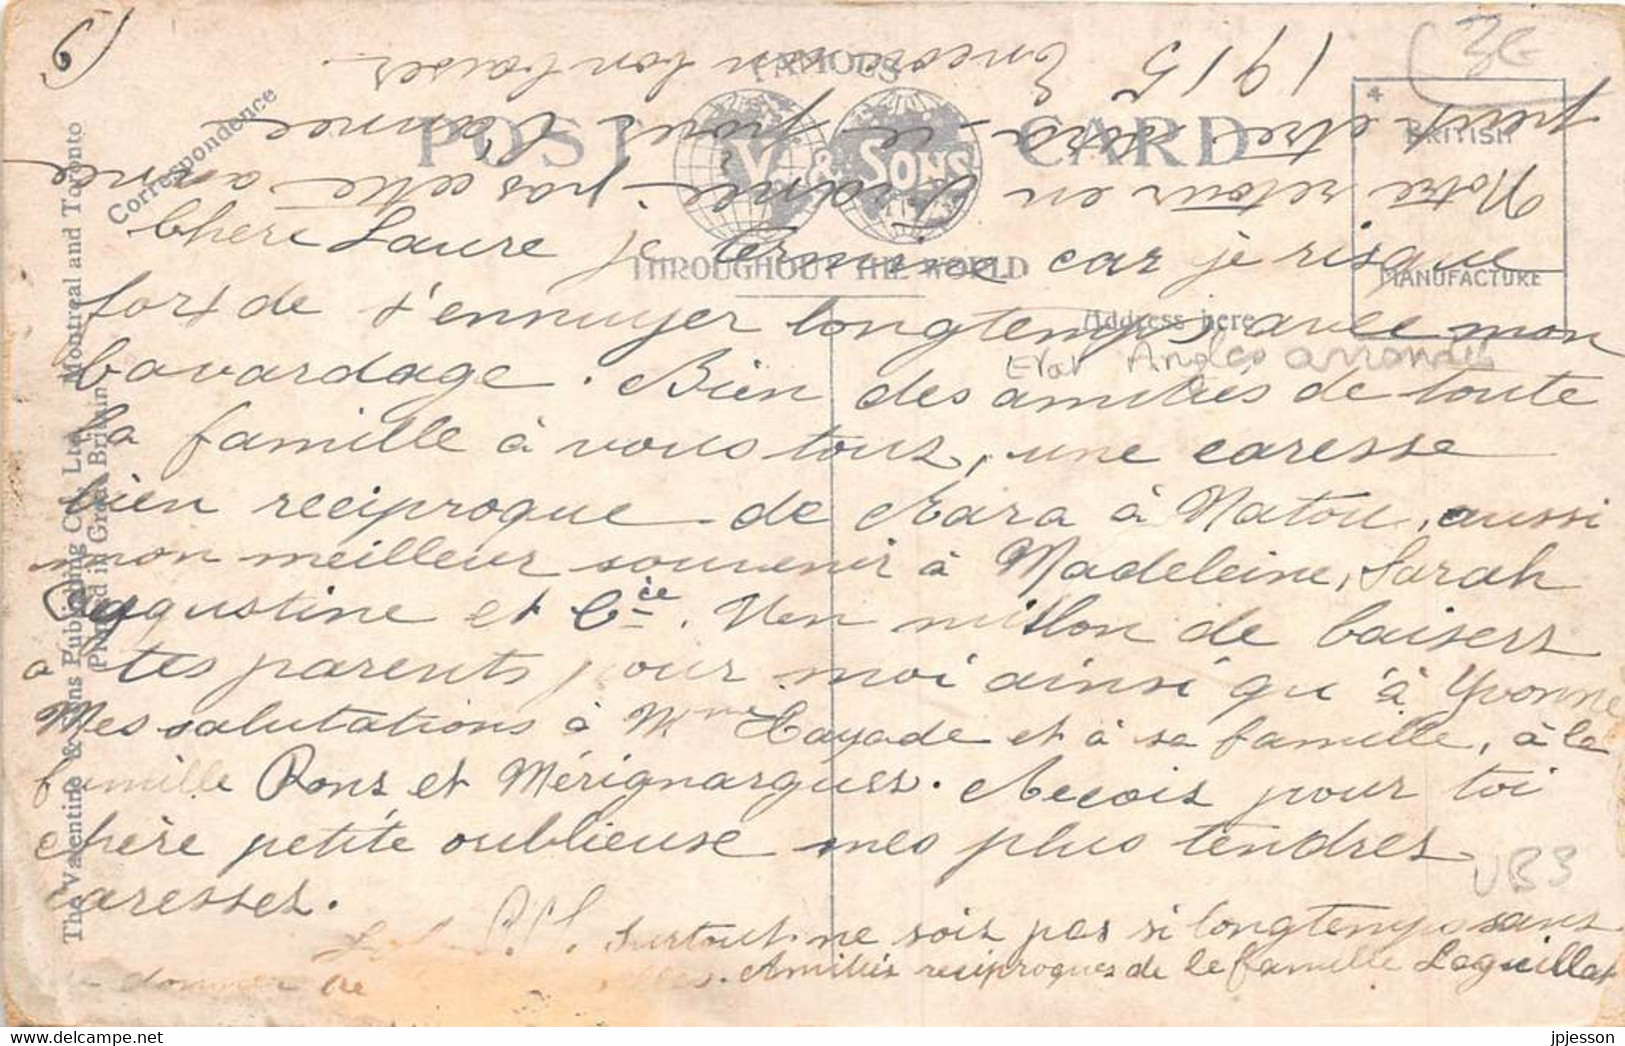 6)
3€
FAMOUS
POST CARD
V. & SONS
THROUGHOUT THE WORLD
Correspondence
Address here
4
BRITISH
MANUFACTURE
The Valentine & Sons Publishing Co. Ltd. Montreal and Toronto
Printed in Great Britain
Etat Angles arrondis
Chère Laure je termine car je risque
fort de t'ennuyer longtemps avec mon
bavardage. Bien des amitiés de toute
la famille à vous tous, une caresse
bien reciproque de à Natou, aussi
mon meilleur souvenir à Madeleine, Sarah
Augustine et Cie. Un million de baisers
a tes parents pour moi ainsi qu'à Yvonne
Mes salutations à Mme Cayade et à sa famille, à la
famille Pons et Mérignargues. Recois pour toi
chère petite oublieuse mes plus tendres
caresses.
UB3
Surtout ne sois pas si longtemps sans
donner de Amitiés reciproques de la famille Laguillat
Notre retour en France pas cette année
peut etre sera-ce pour l'année
1915 Encore un bon baiser.
jpjesson